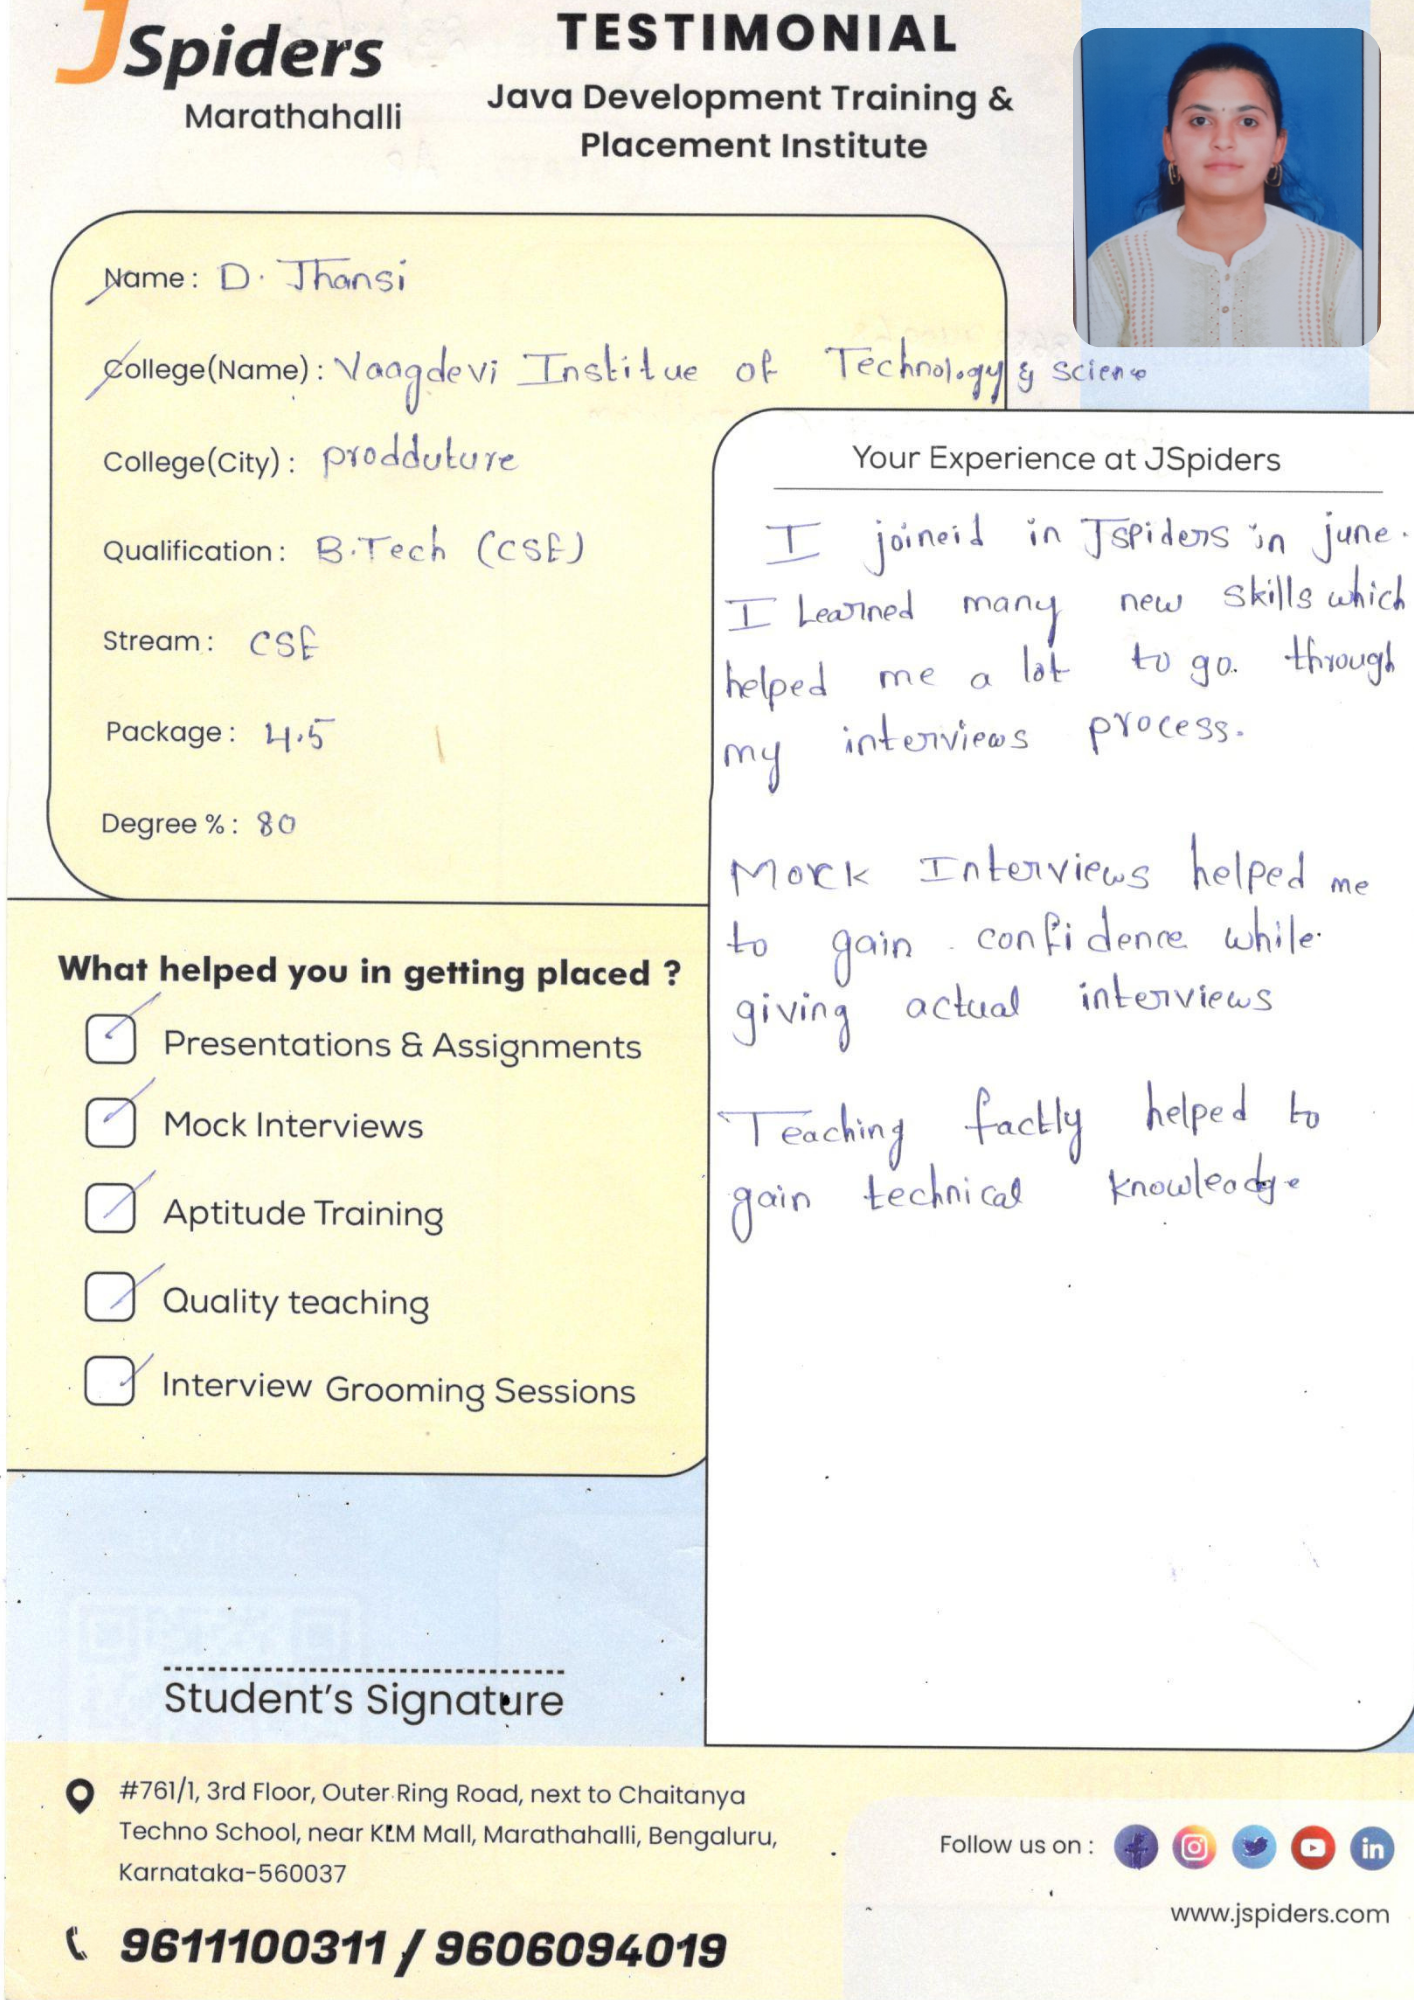 JSpiders
Marathahalli
TESTIMONIAL
Java Development Training &
Placement Institute
Name : D. Jhansi
College(Name) : Vaagdevi Institue of Technology & Science
College(City) : prodduture
Qualification : B.Tech (CSE)
Stream : CSE
Package : 4.5
Degree % : 80
What helped you in getting placed ?
Presentations & Assignments
Mock Interviews
Aptitude Training
Quality teaching
Interview Grooming Sessions
Student's Signature
Your Experience at JSpiders
I joineid in Jspiders in june.
I Learned many new skills which
helped me a lot to go. through
my interviews process.
Mock Interviews helped me
to gain confidence while
giving actual interviews
Teaching factly helped to
gain technical knowleadge
#761/1, 3rd Floor, Outer Ring Road, next to Chaitanya
Techno School, near KLM Mall, Marathahalli, Bengaluru,
Karnataka-560037
9611100311 / 9606094019
Follow us on :
www.jspiders.com